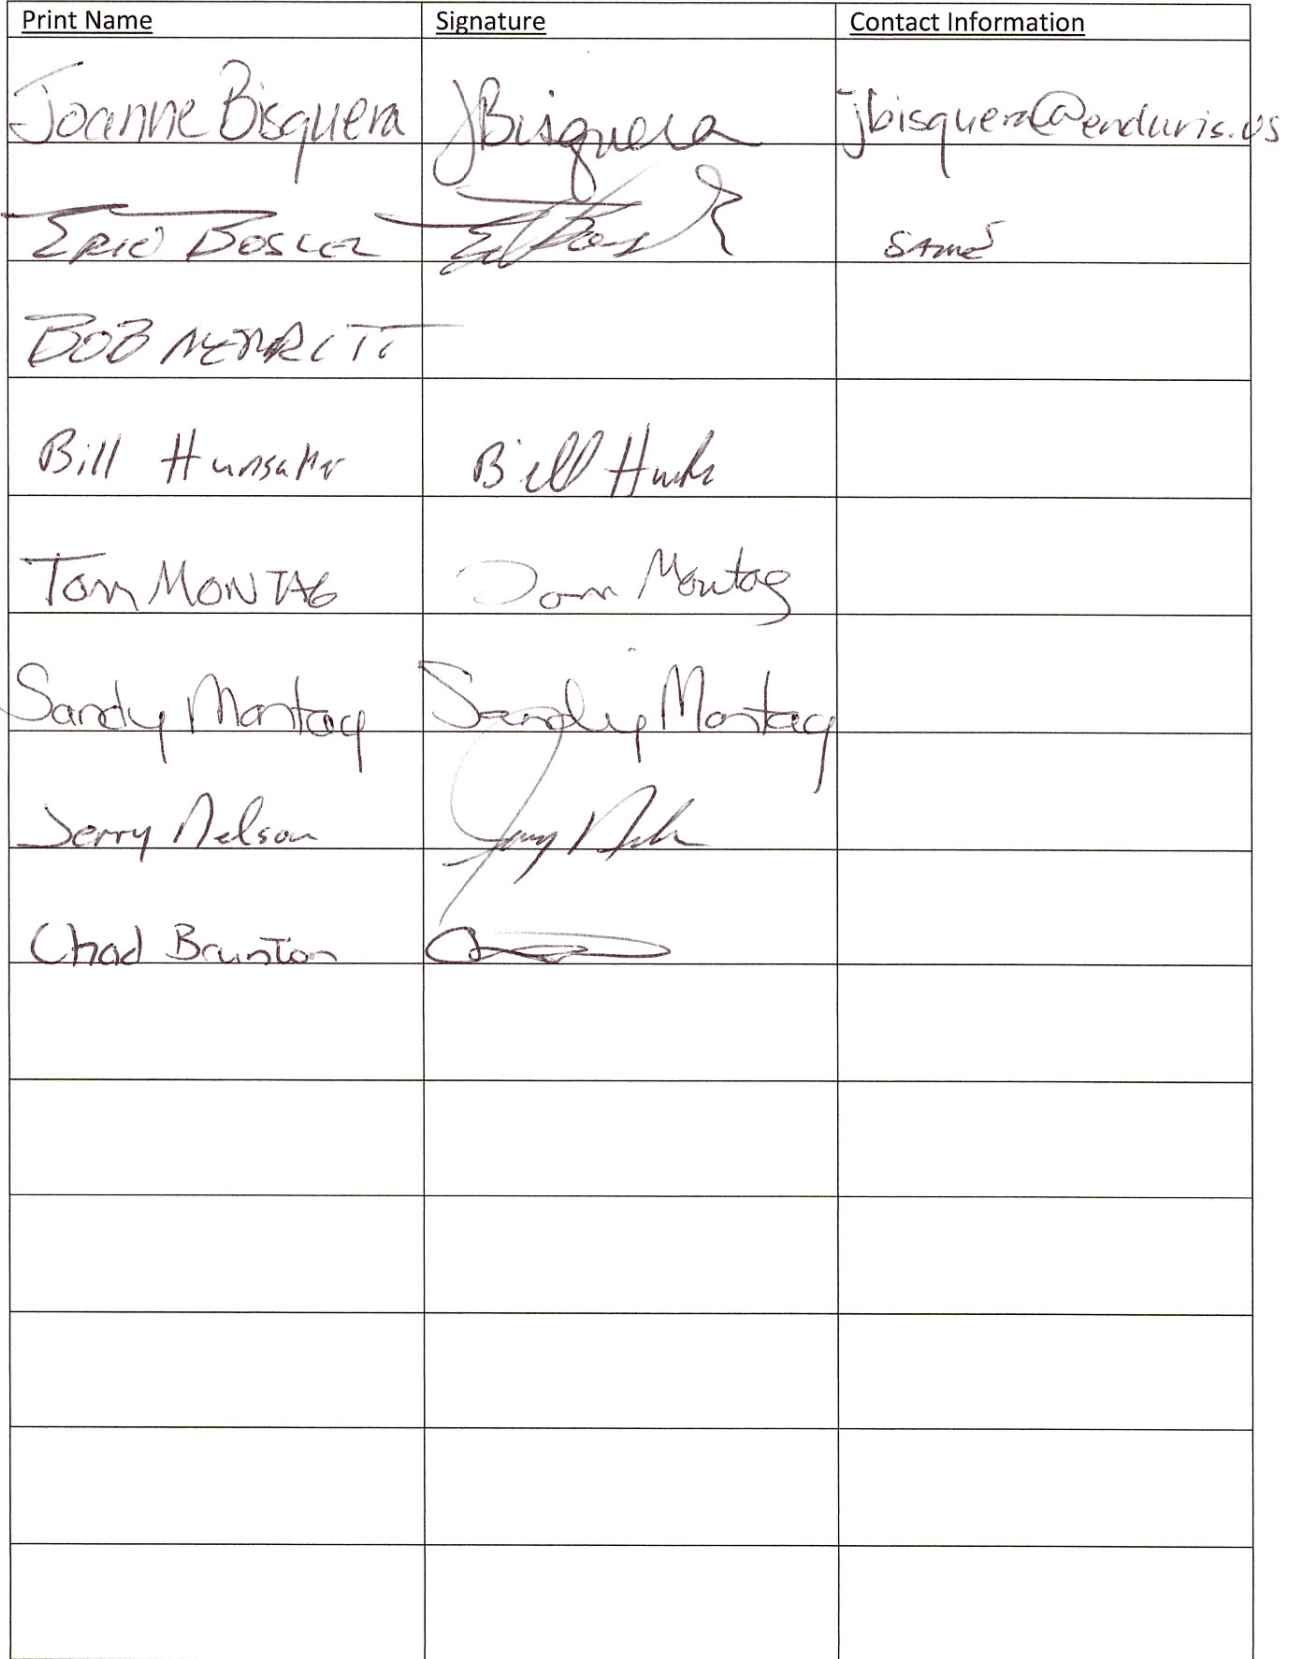 Print Name Signature Contact Information
Joanne Bisquera JBisquera jbisquera@enduris.us
Eric same
BOB MERRITT
Bill Hunsaker Bill
Tom MONTAG Tom Montag
Sandy Montag Sandy Montag
Jerry Nelson Jerry
Chad Brunton